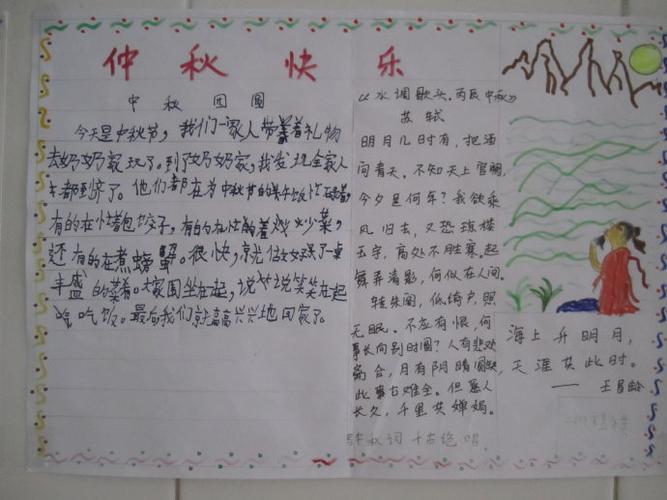 仲秋快乐
中秋团圆
今天是中秋节，我们一家人带着礼物
去奶奶家玩了。到了奶奶家，我发现全家人
都到齐了。他们都在为中秋节的午饭忙碌着，
有的在忙着包饺子，有的在忙着炒菜，
还有的在煮螃蟹。很快，就做好了一桌
丰盛的菜肴。大家围坐在一起，说说笑笑在一起
吃饭。最后我们就高高兴兴地回家了。
《水调歌头·丙辰中秋》
苏轼
明月几时有，把酒
问青天。不知天上宫阙，
今夕是何年？我欲乘
风归去，又恐琼楼
玉宇，高处不胜寒。起
舞弄清影，何似在人间。
转朱阁，低绮户，照
无眠。不应有恨，何
事长向别时圆？人有悲欢
离合，月有阴晴圆缺，
此事古难全。但愿人
长久，千里共婵娟。
中秋词 千古绝唱
海上升明月，
天涯共此时。
——王昌龄